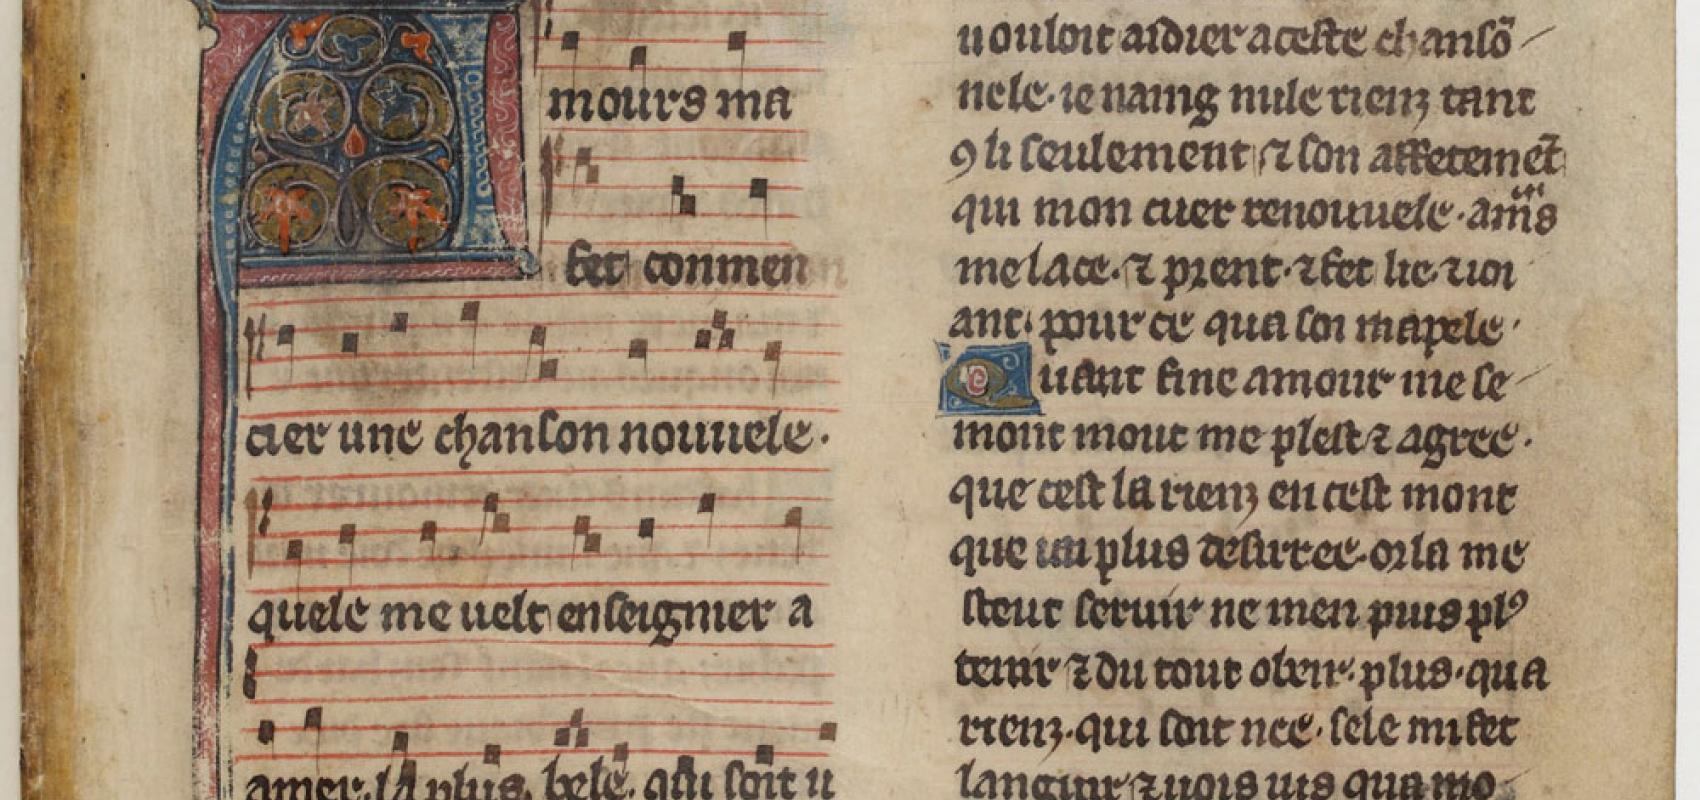 A
mours ma
fet conmen
cier une chanson nouuele.
quele me uelt enseignier a
amer. la plus. bele. qui soit u
uouloit aidier a ceste chansõ
nele. ie naing nule rienz tant
ꝯ li seulement ⁊ son affetemẽt
qui mon cuer renouuele. amis
me lace. ⁊ prent. ⁊ fet lie. ⁊ ioi
ant. pour ce qua soi mapele.
Quant fine amour me se
mont mout me plest ⁊ agree.
que cest la rienz en cest mont
que iai plus desirree. or la me
steut seruir ne men puis plꝰ
tenir ⁊ du tout obeir. plus. qua
rienz. qui soit nee. sele mi fet
languir ⁊ uois uis qua mo